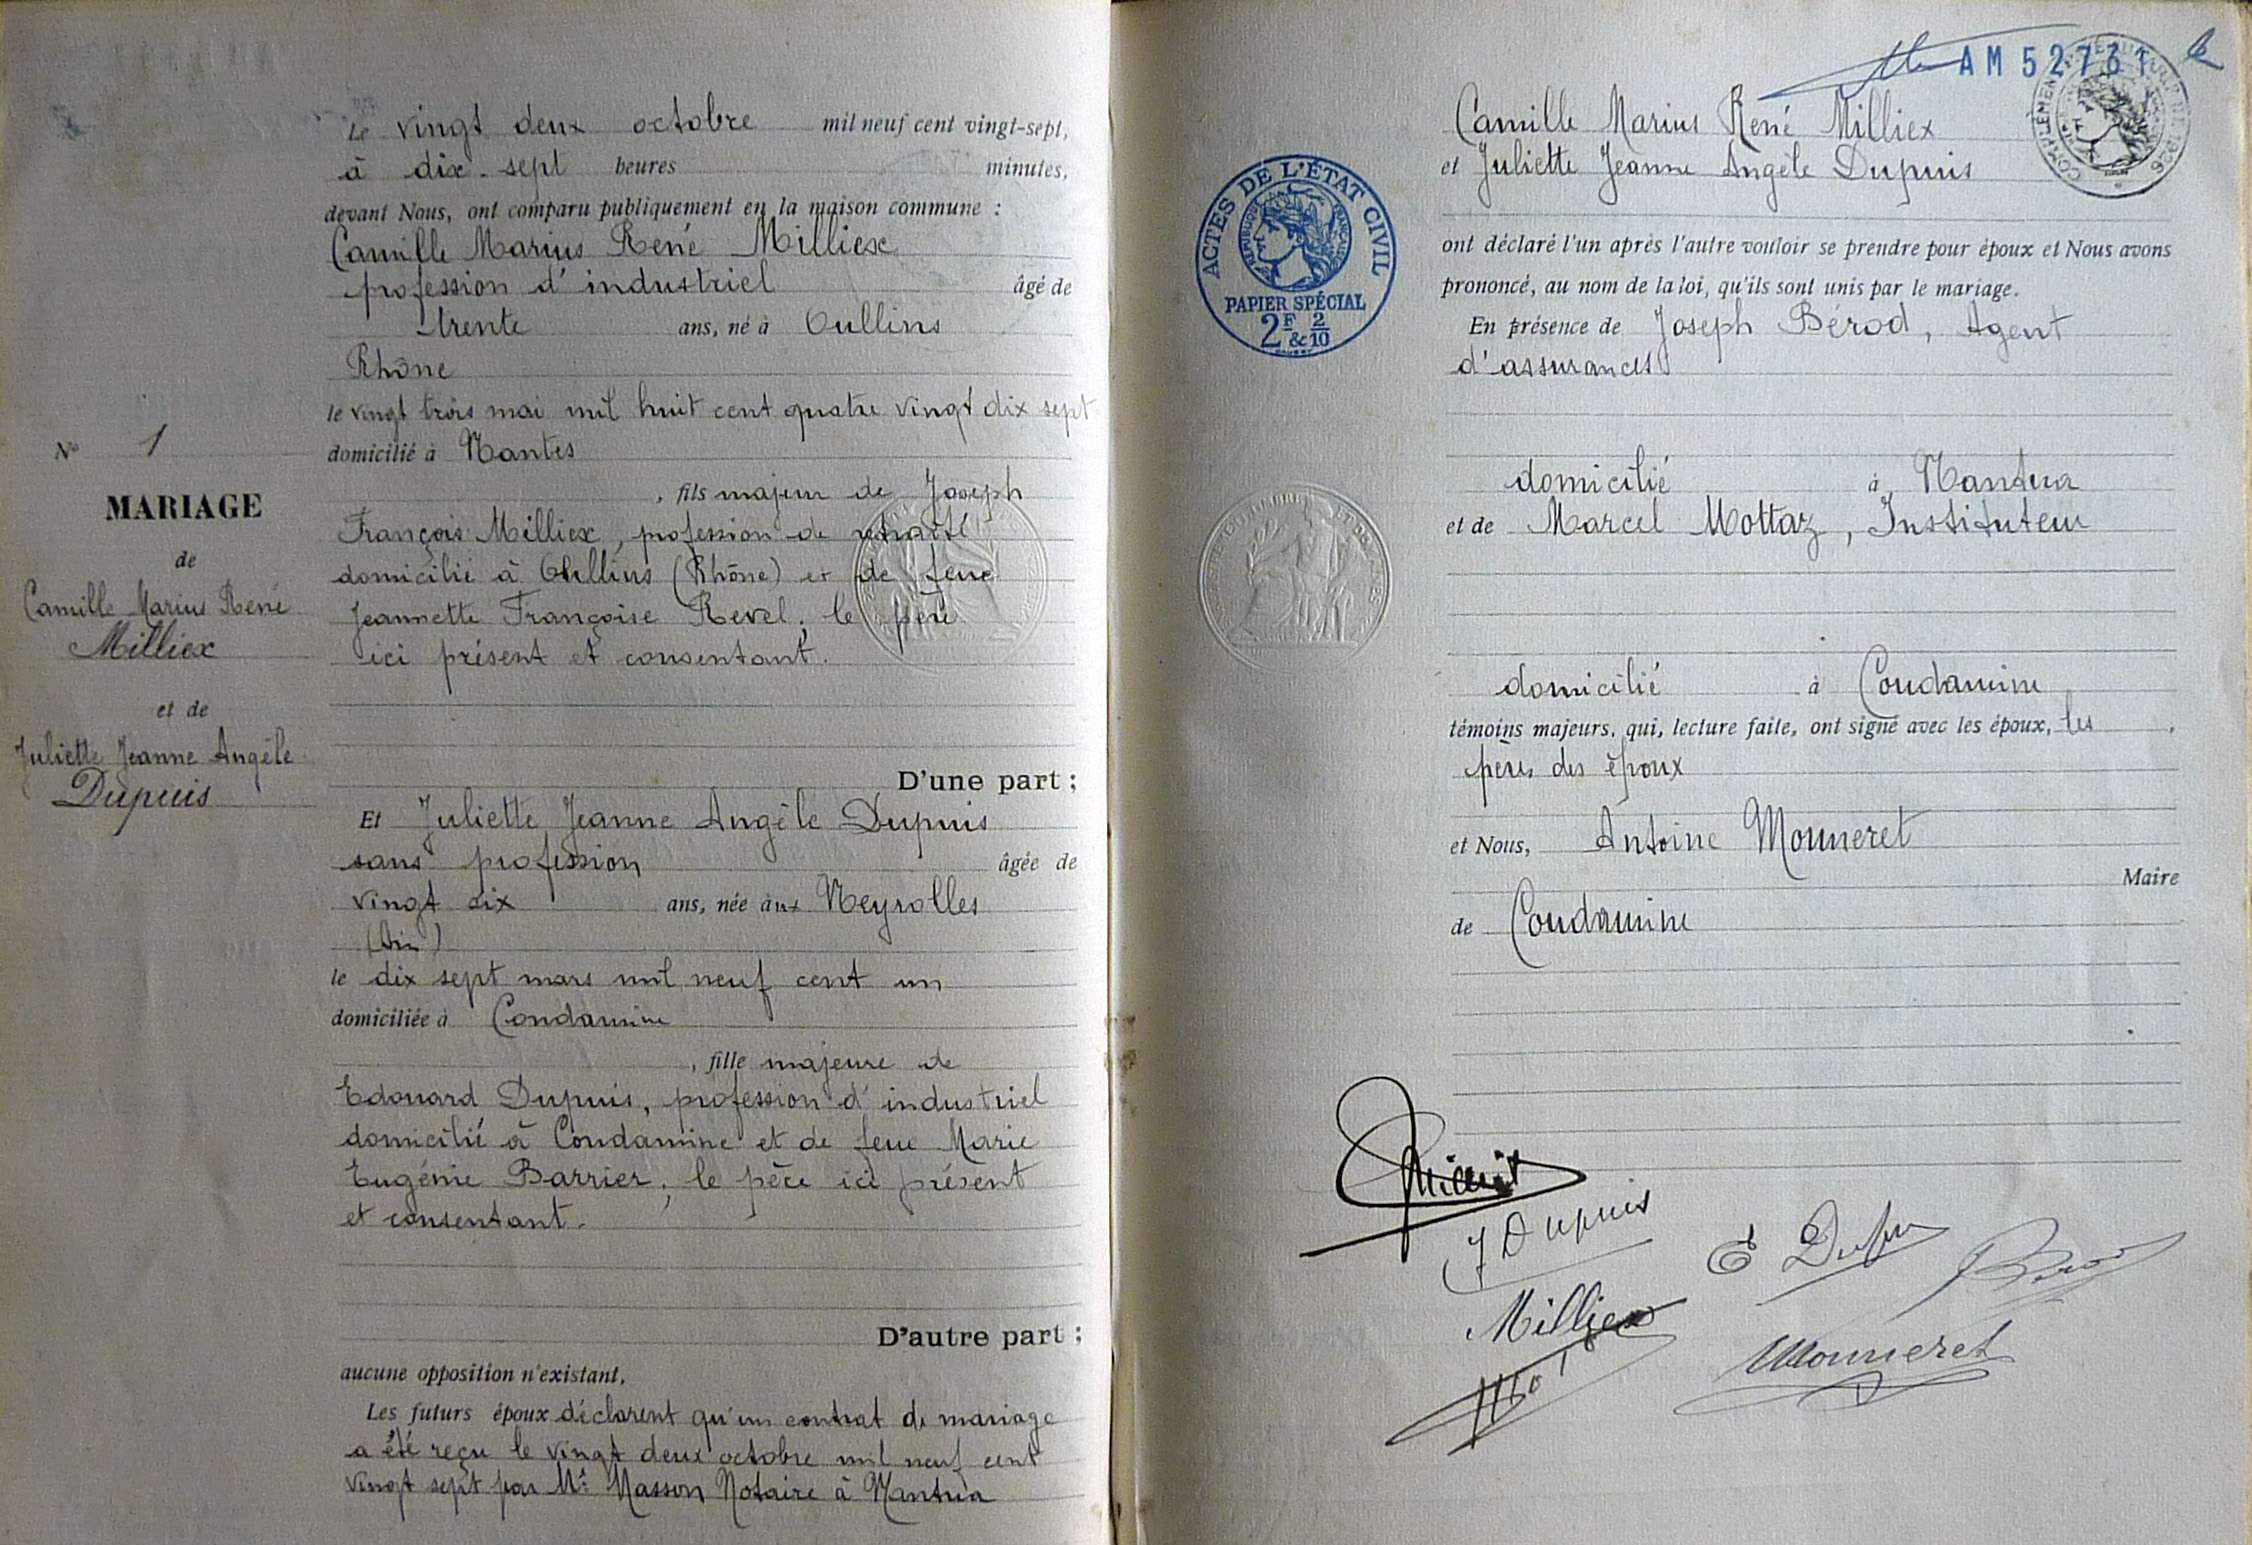 N° 1
MARIAGE
de
Camille Marius René
Milliex
et de
Juliette Jeanne Angèle
Dupuis
Le vingt deux octobre mil neuf cent vingt-sept,
à dix-sept heures minutes,
devant Nous, ont comparu publiquement en la maison commune :
Camille Marius René Milliex
profession d'industriel âgé de
trente ans, né à Oullins
Rhône
le vingt trois mai mil huit cent quatre vingt dix sept
domicilié à Nantes
, fils majeur de Joseph
François Milliex, profession de retraité
domicilié à Oullins (Rhône) et de feue
Jeannette Françoise Revel, le père
ici présent et consentant.
D'une part ;
Et Juliette Jeanne Angèle Dupuis
sans profession âgée de
vingt six ans, née aux Neyrolles
(Ain)
le dix sept mars mil neuf cent un
domiciliée à Condamine
, fille majeure de
Edouard Dupuis, profession d'industriel
domicilié à Condamine et de feue Marie
Eugénie Barrier, le père ici présent
et consentant.
D'autre part ;
aucune opposition n'existant,
Les futurs époux déclarent qu'un contrat de mariage
a été reçu le vingt deux octobre mil neuf cent
vingt sept par Me Masson Notaire à Nantua
AM 52731
Camille Marius René Milliex
et Juliette Jeanne Angèle Dupuis
ACTES DE L'ÉTAT CIVIL
RÉPUBLIQUE FRANÇAISE
PAPIER SPÉCIAL
2F & 2/10
ont déclaré l'un après l'autre vouloir se prendre pour époux et Nous avons
prononcé, au nom de la loi, qu'ils sont unis par le mariage.
En présence de Joseph Bérod, Agent
d'assurances
domicilié à Nantua
et de Marcel Mottaz, Instituteur
domicilié à Condamine
témoins majeurs, qui, lecture faite, ont signé avec les époux, les ,
pères des époux
et Nous, Antoine Monneret
Maire
de Condamine
J Dupuis
E Dupuis
Bérod
Milliex
Monneret